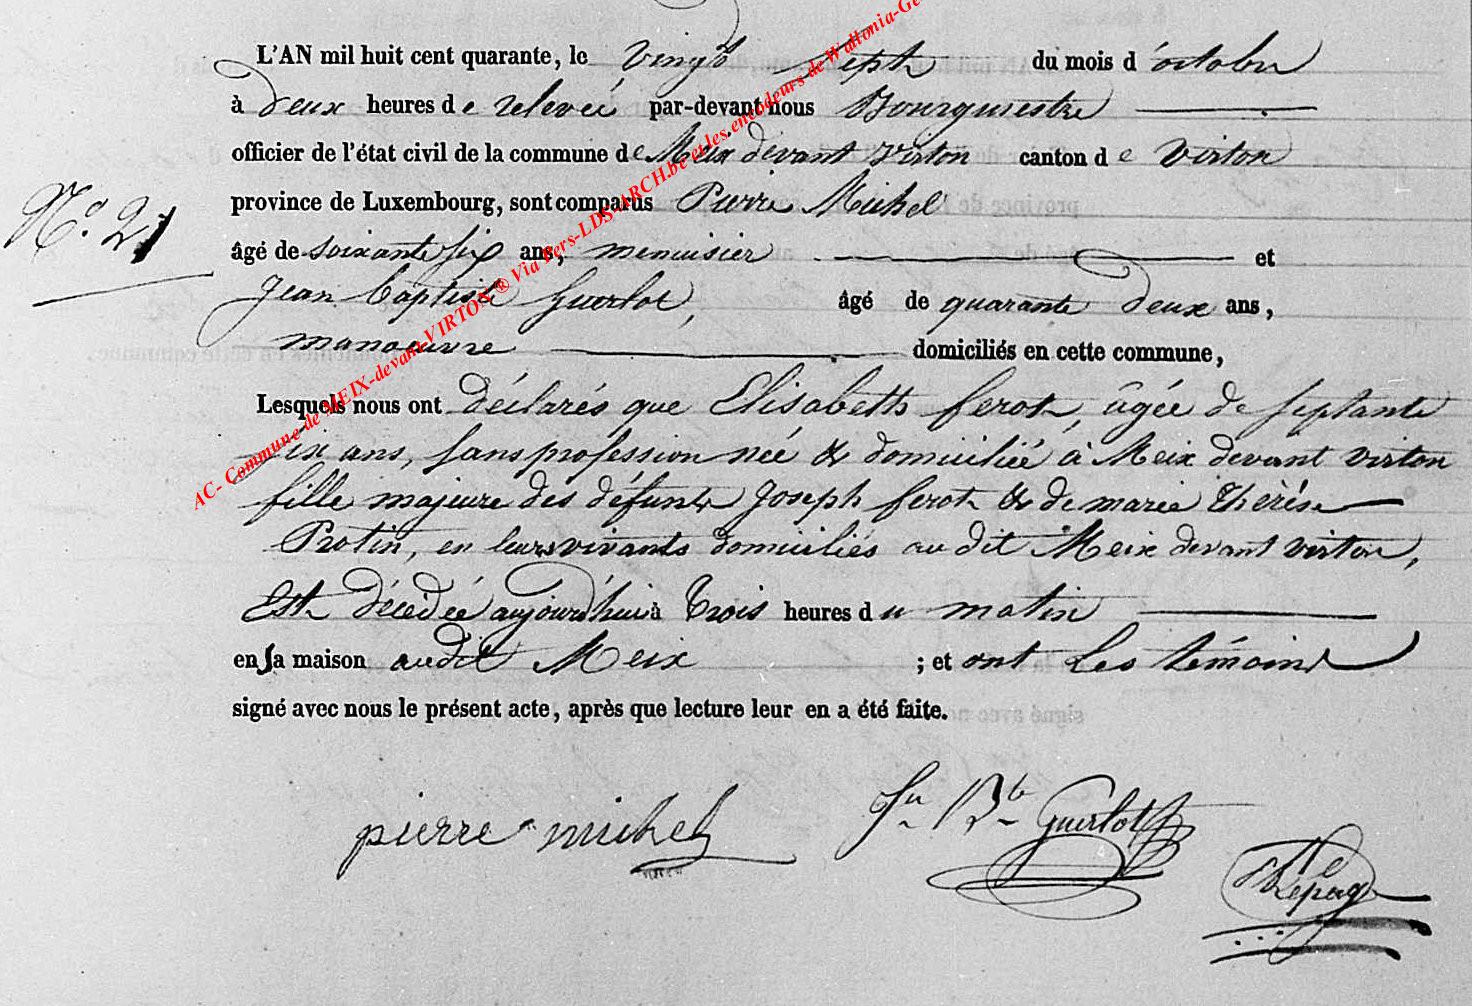 L'AN mil huit cent quarante, le vingt sept du mois d'octobre
à deux heures de relevée par-devant nous Bourgmestre
officier de l'état civil de la commune de Meix devant Virton canton de Virton
province de Luxembourg, sont comparus Pierre Michel
N.° 21
âgé de soixante six ans, menuisier et
Jean Baptiste Guerlot, âgé de quarante deux ans,
manoeuvre domiciliés en cette commune,
Lesquels nous ont déclarés que Elisabeth ferot, âgée de septante
six ans, sans profession née & domiciliée à Meix devant virton
fille majeure des défunts Joseph ferot & de marie Thérèse
Protin, en leurs vivants domiciliés au dit Meix devant virton,
Est décédée aujourd'hui à trois heures du matin
en sa maison audit Meix ; et ont Les témoins
signé avec nous le présent acte, après que lecture leur en a été faite.
pierre michel
Jn Bte Guerlot
Lepage
AC- Commune de MEIX-devant-VIRTON ® Via Pers-LDS-ARCH.be et les encodeurs de Wallonia-Ge